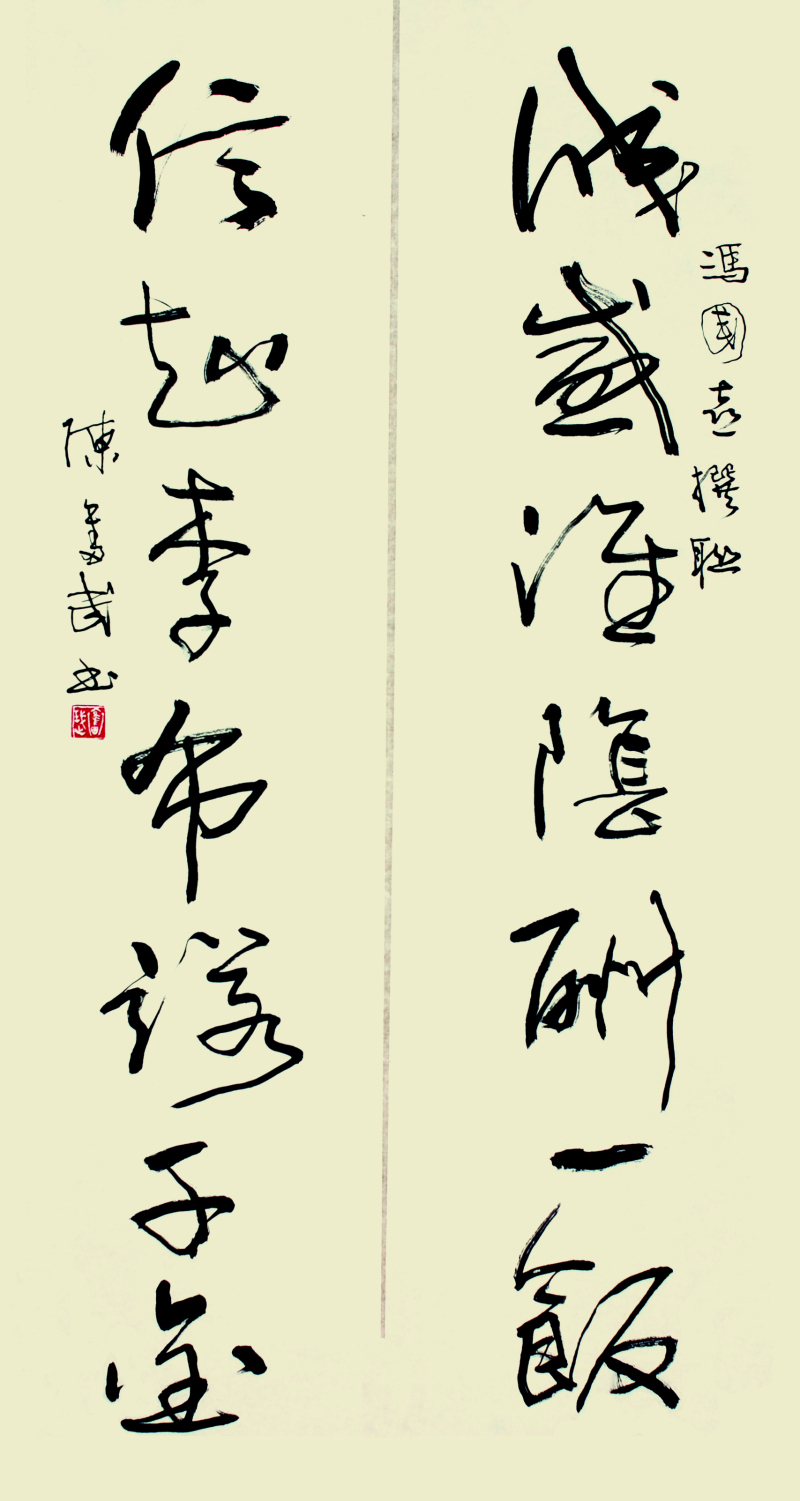 馮國喜撰聯
誠感淮陰酬一飯
信超季布諾千金
陳奮武書